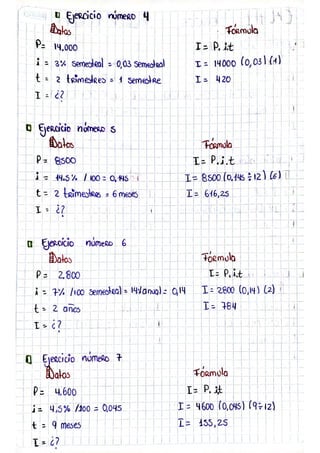 Ejercicio número 4
Datos Fórmula
P= 14.000 I= P. i.t
i = 3% semestral = 0,03 semestral I= 14000 (0,03) (1)
t = 2 trimestres = 1 semestre I= 420
I = ¿?
Ejercicio número 5
Datos Fórmula
P= 8500 I= P.i.t
i = 14.5% / 100 = 0,145 I= 8500 (0,145 ÷ 12) (6)
t = 2 trimestres = 6 meses I= 616,25
I = ¿?
Ejercicio número 6
Datos Fórmula
P= 2.800 I= P.i.t
i = 7% /100 semestral = 14%anual = 0,14 I= 2800 (0,14) (2)
t = 2 años I= 784
I = ¿?
Ejercicio número 7
Datos Fórmula
P= 4.600 I= P. i.t
i = 4,5% /100 = 0,045 I= 4600 (0,045) (9÷12)
t = 9 meses I= 155,25
I = ¿?